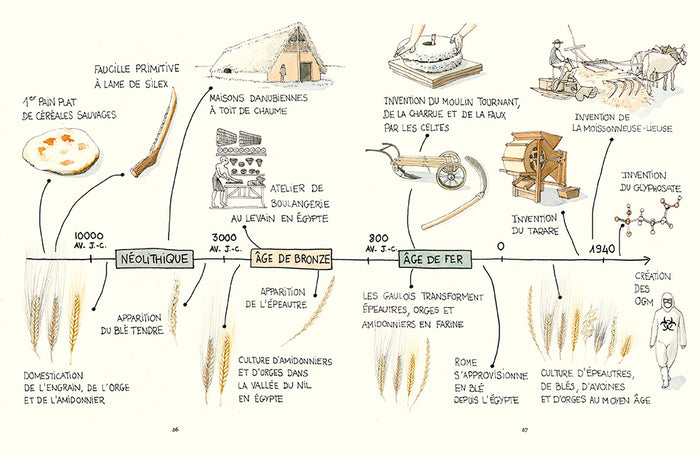 1er PAIN PLAT
DE CÉRÉALES SAUVAGES
FAUCILLE PRIMITIVE
À LAME DE SILEX
MAISONS DANUBIENNES
À TOIT DE CHAUME
ATELIER DE
BOULANGERIE
AU LEVAIN EN ÉGYPTE
INVENTION DU MOULIN TOURNANT,
DE LA CHARRUE ET DE LA FAUX
PAR LES CELTES
INVENTION DE
LA MOISSONNEUSE-LIEUSE
INVENTION
DU TARARE
INVENTION
DU GLYPHOSATE
10000
AV. J.-C.
NÉOLITHIQUE
3000
AV. J.-C.
ÂGE DE BRONZE
800
AV. J.-C.
ÂGE DE FER
0
1940
CRÉATION
DES
OGM
DOMESTICATION
DE L'ENGRAIN, DE L'ORGE
ET DE L'AMIDONNIER
APPARITION
DU BLÉ TENDRE
CULTURE D'AMIDONNIERS
ET D'ORGES DANS
LA VALLÉE DU NIL
EN ÉGYPTE
APPARITION
DE L'ÉPEAUTRE
LES GAULOIS TRANSFORMENT
ÉPEAUTRES, ORGES ET
AMIDONNIERS EN FARINE
ROME
S'APPROVISIONNE
EN BLÉ
DEPUIS L'ÉGYPTE
CULTURE D'ÉPEAUTRES,
DE BLÉS, D'AVOINES
ET D'ORGES AU MOYEN ÂGE
26
27